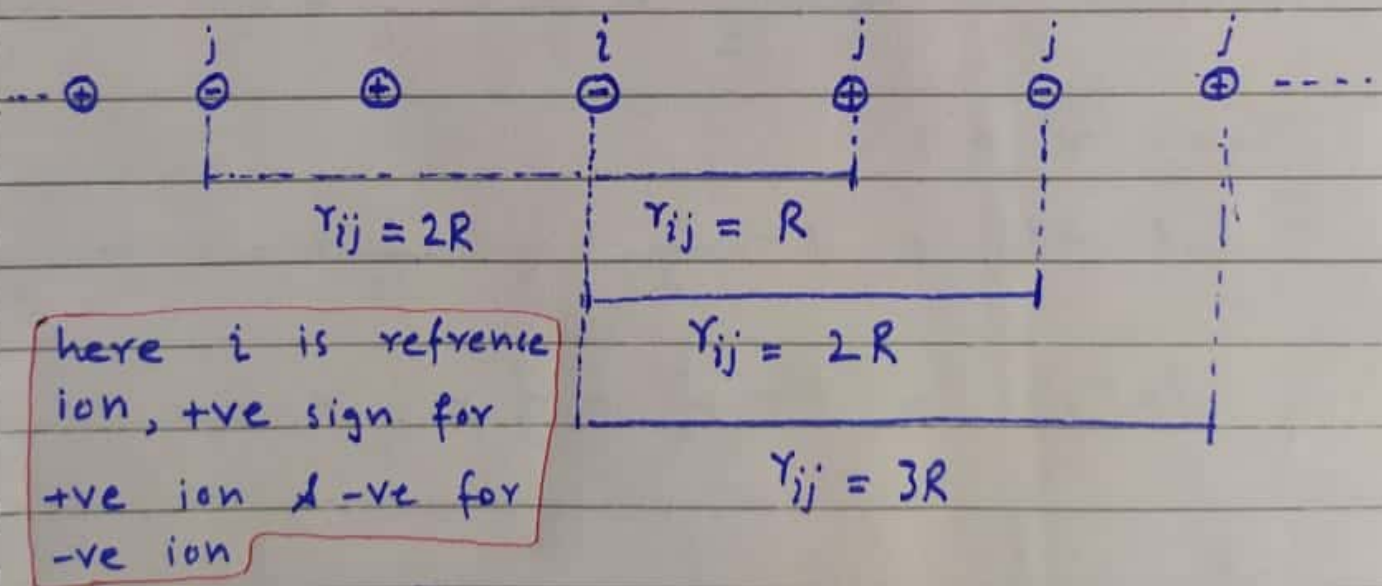 j i j j j
+ - + - + - +
r_ij = 2R r_ij = R
r_ij = 2R
r_ij = 3R
here i is refrence
ion, +ve sign for
+ve ion & -ve for
-ve ion